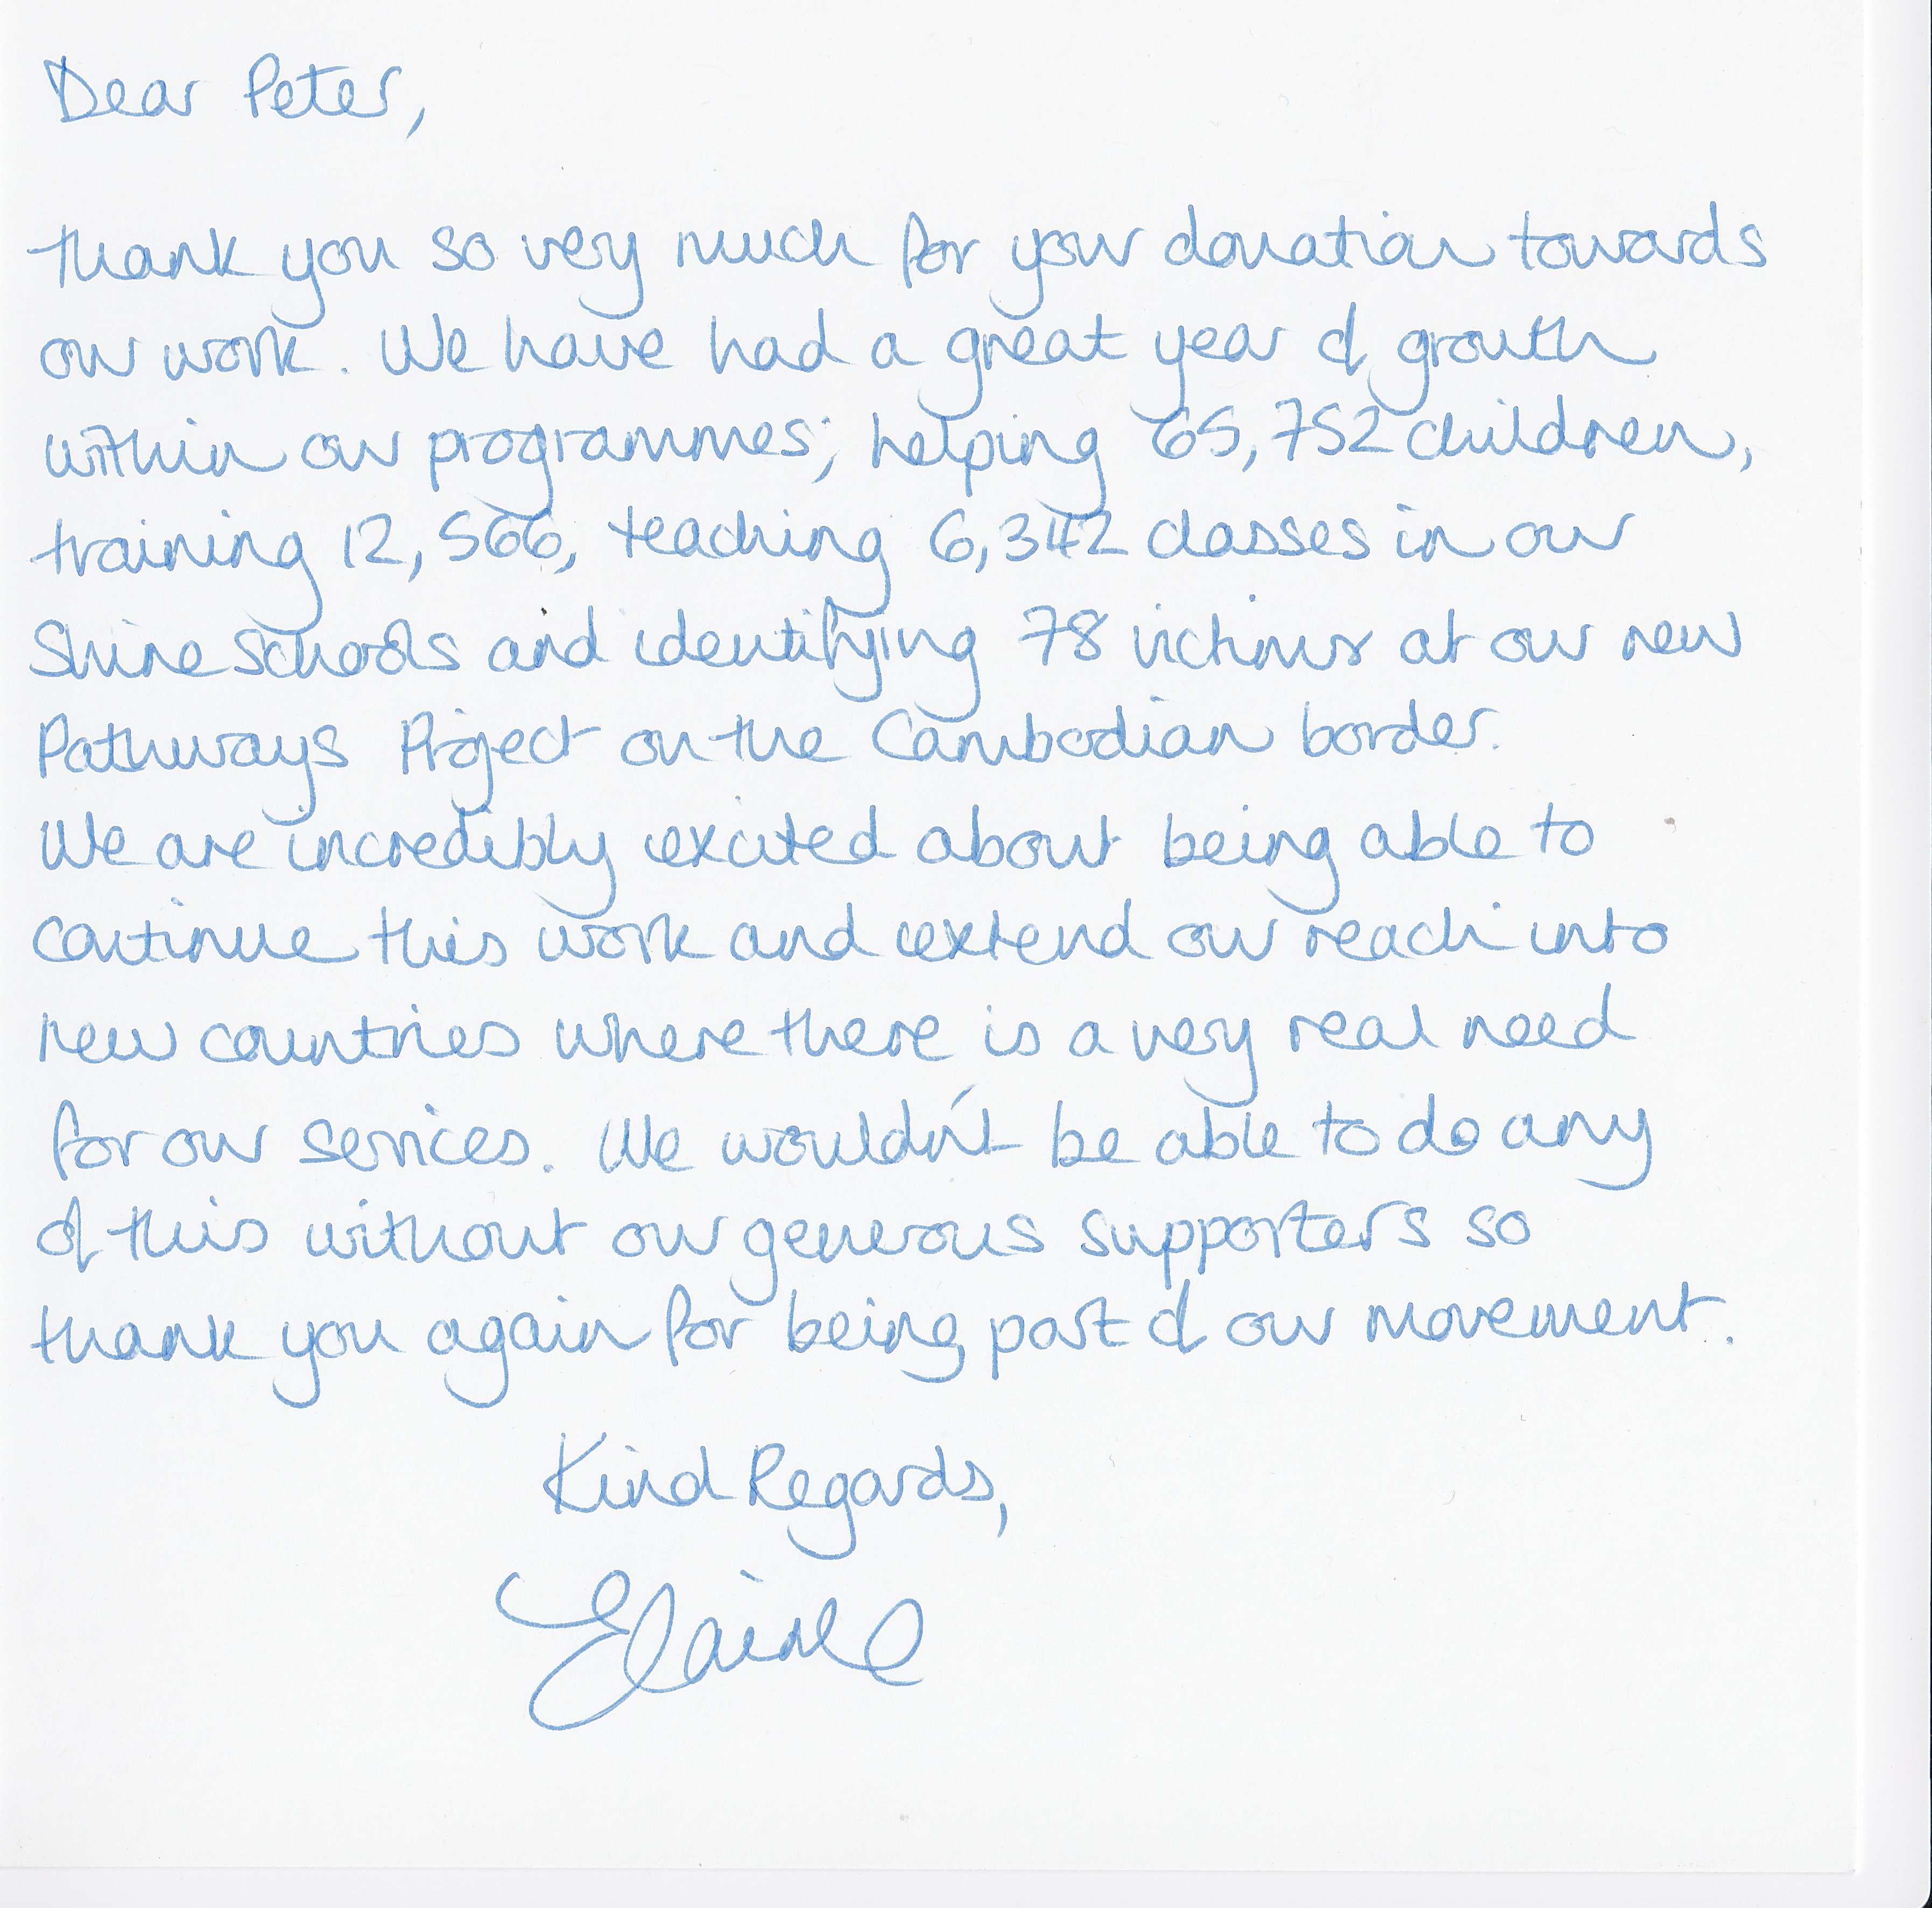 Dear Peter,
thank you so very much for your donation towards
our work. We have had a great year of growth
within our programmes; helping 65,752 children,
training 12,566, teaching 6,342 classes in our
Shine Schools and identifying 78 victims at our new
Pathways Project on the Cambodian border.
We are incredibly excited about being able to
continue this work and extend our reach into
new countries where there is a very real need
for our services. We wouldn't be able to do any
of this without our generous supporters so
thank you again for being part of our movement.
Kind Regards,
Elaine